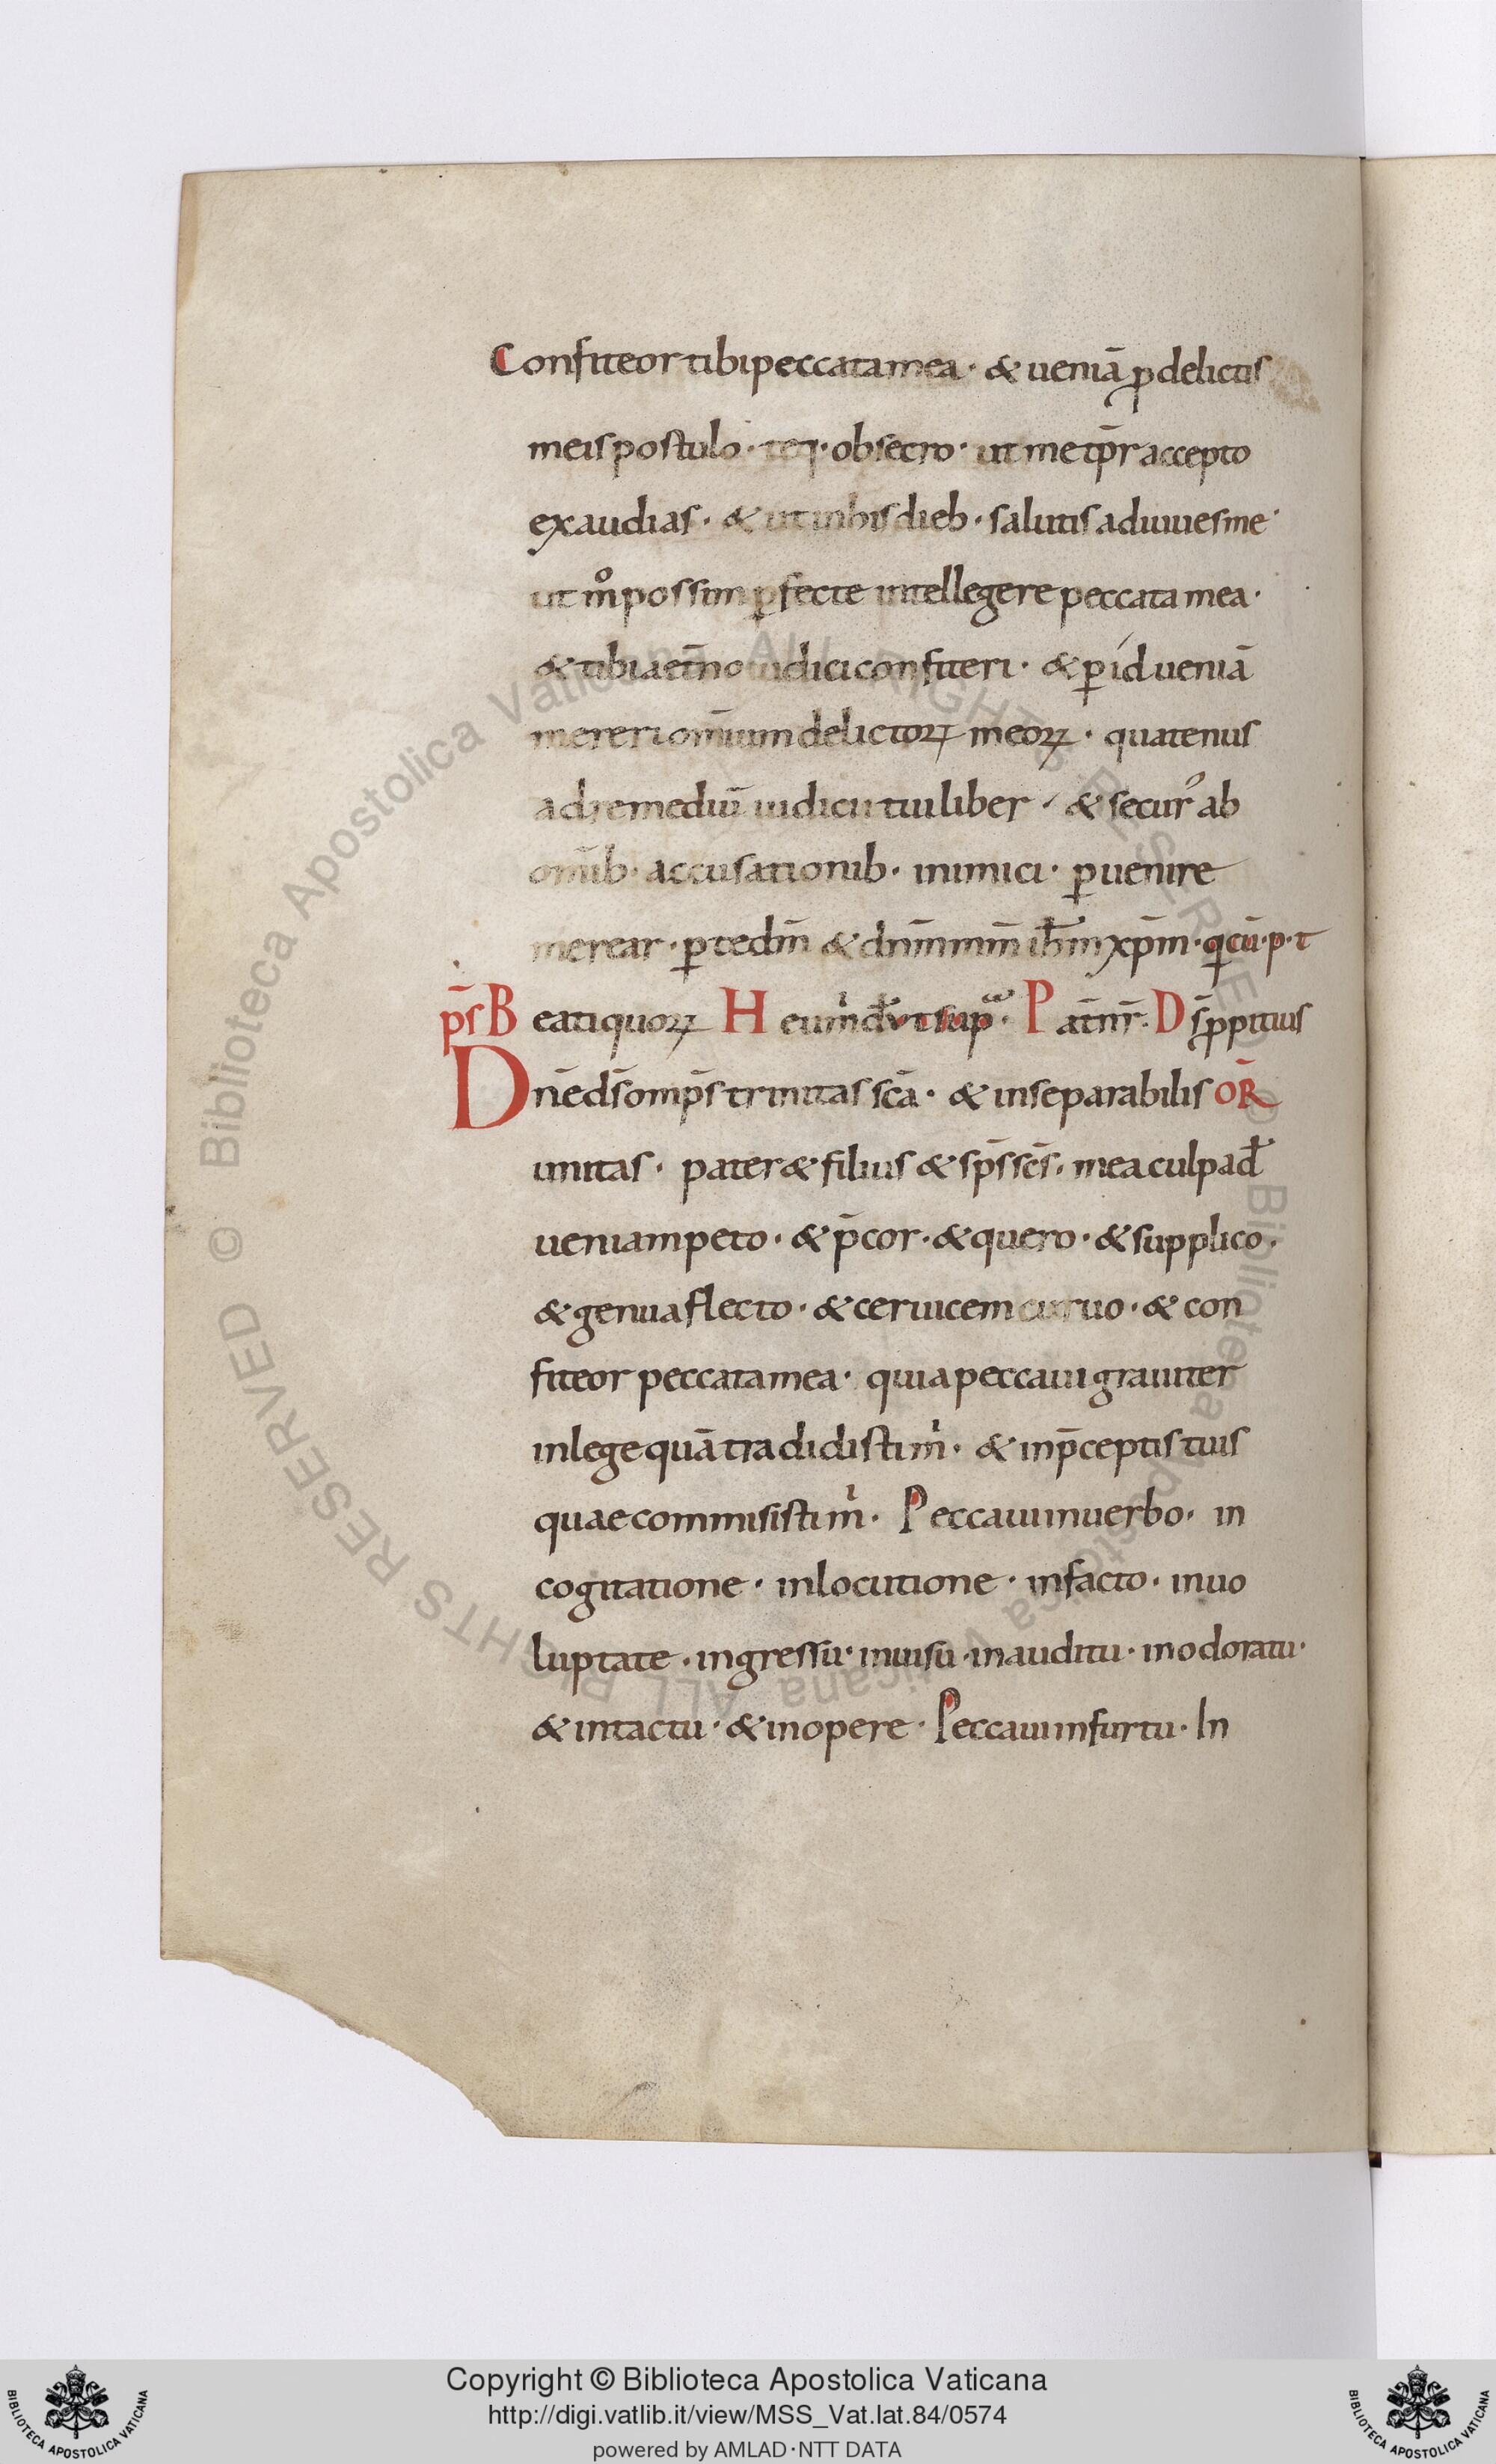 Confiteor tibi peccata mea · & ueniā ꝓ delictis
meis postulo · teq· obsecro · ut me tp̄r accepto
exaudias · & ut in his dieb · salutis adiuues me ·
ut m̊ possim ꝑfecte intellegere peccata mea ·
& tibi aet̄no iudici confiteri · & ꝑ id ueniā
mereri om̄ium delictoꝝ meoꝝ · quatenus
ad remediū iudicii tui liber · & secur᾽ ab
om̄ib · accusationib · inimici · ꝑuenire
merear · ꝑ te dm̄ & dn̄m nm̄ ihm̄ xp̄m · q cū · p · t
p̄s Beati quoꝝ Heu m̍ đ vt sup · Pat̄ nr̄ · D s̄ ꝓpitius
Dn̄e ds̄ omp̄s trinitas sc̄a · & inseparabilis OR̄
unitas · pater & filius & sp̄s sc̄s · mea culpa đ
ueniam peto · & p̄cor · & quero · & supplico ·
& genua flecto · & ceruicem curuo · & con
fiteor peccata mea · quia peccaui grauiter
in lege quā tradidisti m̍ · & in p̄ceptis tuis
quae commisisti m̍ · Peccaui in uerbo · in
cogitatione · in locutione · in facto · in uo
luptate · in gressu · in uisu · in auditu · in odoratu ·
& in tactu · & in opere · Peccaui in furtu · In
© Biblioteca Apostolica Vaticana ALL RIGHTS RESERVED © Biblioteca Apostolica Vaticana ALL RIGHTS RESERVED
BIBLIOTECA APOSTOLICA VATICANA
Copyright © Biblioteca Apostolica Vaticana
http://digi.vatlib.it/view/MSS_Vat.lat.84/0574
powered by AMLAD·NTT DATA
BIBLIOTECA APOSTOLICA VATICANA